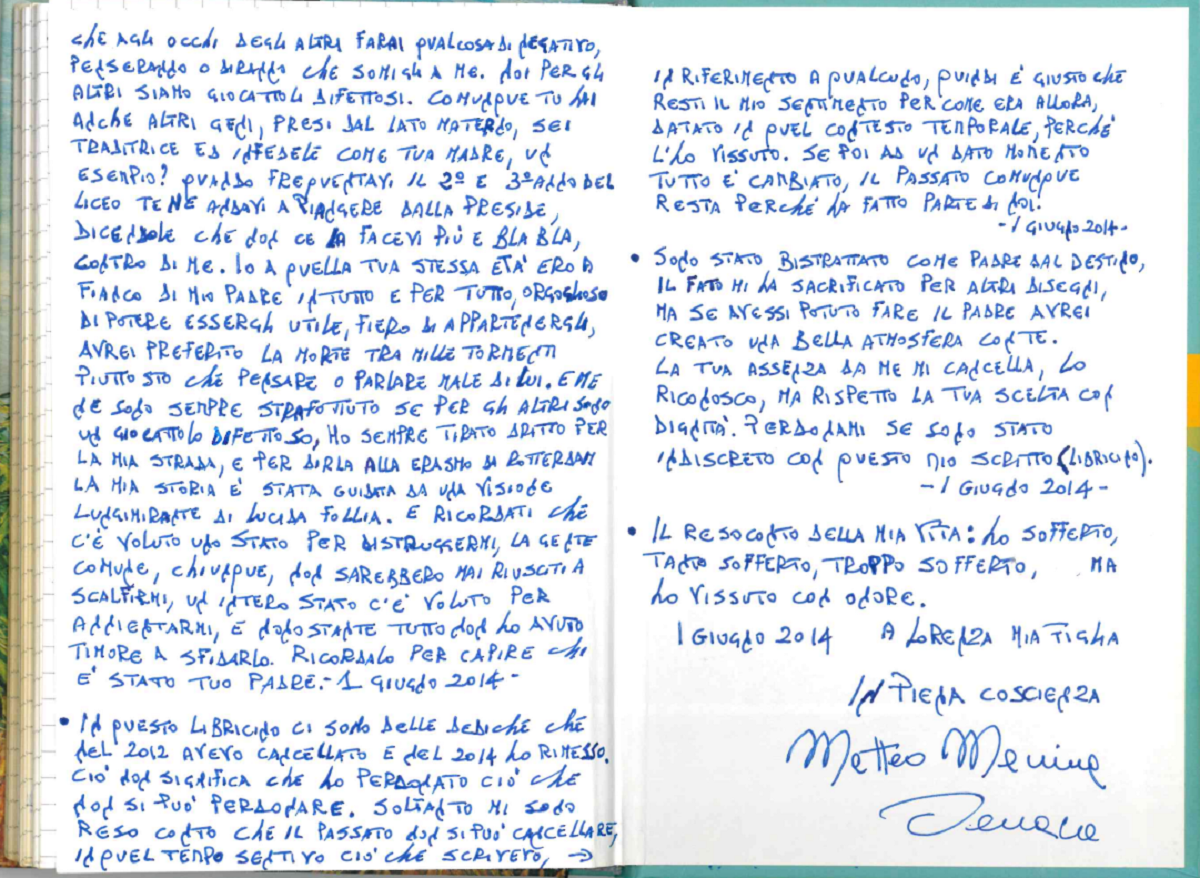 CHE AGLI OCCHI DEGLI ALTRI FARAI QUALCOSA DI NEGATIVO,
PENSERANNO O DIRANNO CHE SOMIGLI A ME. NOI PER GLI
ALTRI SIAMO GIOCATTOLI DIFETTOSI. COMUNQUE TU HAI
ANCHE ALTRI GENI, PRESI DAL LATO MATERNO, SEI
TRADITRICE ED INFEDELE COME TUA MADRE, UN
ESEMPIO? QUANDO FREQUENTAVI IL 2º E 3º ANNO DEL
LICEO TE NE ANDAVI A PIANGERE DALLA PRESIDE,
DICENDOLE CHE NON CE LA FACEVI PIÙ E BLA BLA,
CONTRO DI ME. IO A QUELLA TUA STESSA ETÀ ERO A
FIANCO DI MIO PADRE IN TUTTO E PER TUTTO, ORGOGLIOSO
DI POTERE ESSERGLI UTILE, FIERO DI APPARTENERGLI,
AVREI PREFERITO LA MORTE TRA MILLE TORMENTI
PIUTTOSTO CHE PENSARE O PARLARE MALE DI LUI. E ME
NE SONO SEMPRE STRAFOTTUTO SE PER GLI ALTRI SONO
UN GIOCATTOLO DIFETTOSO, HO SEMPRE TIRATO DRITTO PER
LA MIA STRADA, E PER DIRLA ALLA ERASMO DI ROTTERDAM
LA MIA STORIA E' STATA GUIDATA DA UNA VISIONE
LUNGIMIRANTE DI LUCIDA FOLLIA. E RICORDATI CHE
C'È VOLUTO UNO STATO PER DISTRUGGERMI, LA GENTE
COMUNE, CHIUNQUE, NON SAREBBERO MAI RIUSCITI A
SCALFIRMI, UN INTERO STATO C'È VOLUTO PER
ANNIENTARMI, E NONOSTANTE TUTTO NON HO AVUTO
TIMORE A SFIDARLO. RICORDALO PER CAPIRE CHI
E' STATO TUO PADRE.- 1 GIUGNO 2014 -
• IN QUESTO LIBRICINO CI SONO DELLE DEDICHE CHE
NEL 2012 AVEVO CANCELLATO E NEL 2014 HO RIMESSO.
CIÒ NON SIGNIFICA CHE HO PERDONATO CIÒ CHE
NON SI PUÒ PERDONARE. SOLTANTO MI SONO
RESO CONTO CHE IL PASSATO NON SI PUÒ CANCELLARE,
IN QUEL TEMPO SENTIVO CIÒ CHE SCRIVEVO, →
IN RIFERIMENTO A QUALCUNO, QUINDI E' GIUSTO CHE
RESTI IL MIO SENTIMENTO PER COME ERA ALLORA,
DATATO IN QUEL CONTESTO TEMPORALE, PERCHÉ
L'HO VISSUTO. SE POI AD UN DATO MOMENTO
TUTTO E' CAMBIATO, IL PASSATO COMUNQUE
RESTA PERCHÉ HA FATTO PARTE DI NOI!
- 1 GIUGNO 2014 -
• SONO STATO BISTRATTATO COME PADRE DAL DESTINO,
IL FATO MI HA SACRIFICATO PER ALTRI DISEGNI,
MA SE AVESSI POTUTO FARE IL PADRE AVREI
CREATO UNA BELLA ATMOSFERA CON TE.
LA TUA ASSENZA DA ME MI CANCELLA, LO
RICONOSCO, MA RISPETTO LA TUA SCELTA CON
DIGNITÀ. PERDONAMI SE SONO STATO
INDISCRETO CON QUESTO MIO SCRITTO (LIBRICINO).
- 1 GIUGNO 2014 -
• IL RESOCONTO DELLA MIA VITA: HO SOFFERTO,
TANTO SOFFERTO, TROPPO SOFFERTO, MA
HO VISSUTO CON ONORE.
1 GIUGNO 2014 A LORENZA MIA FIGLIA
IN PIENA COSCIENZA
Matteo Messina
Denaro